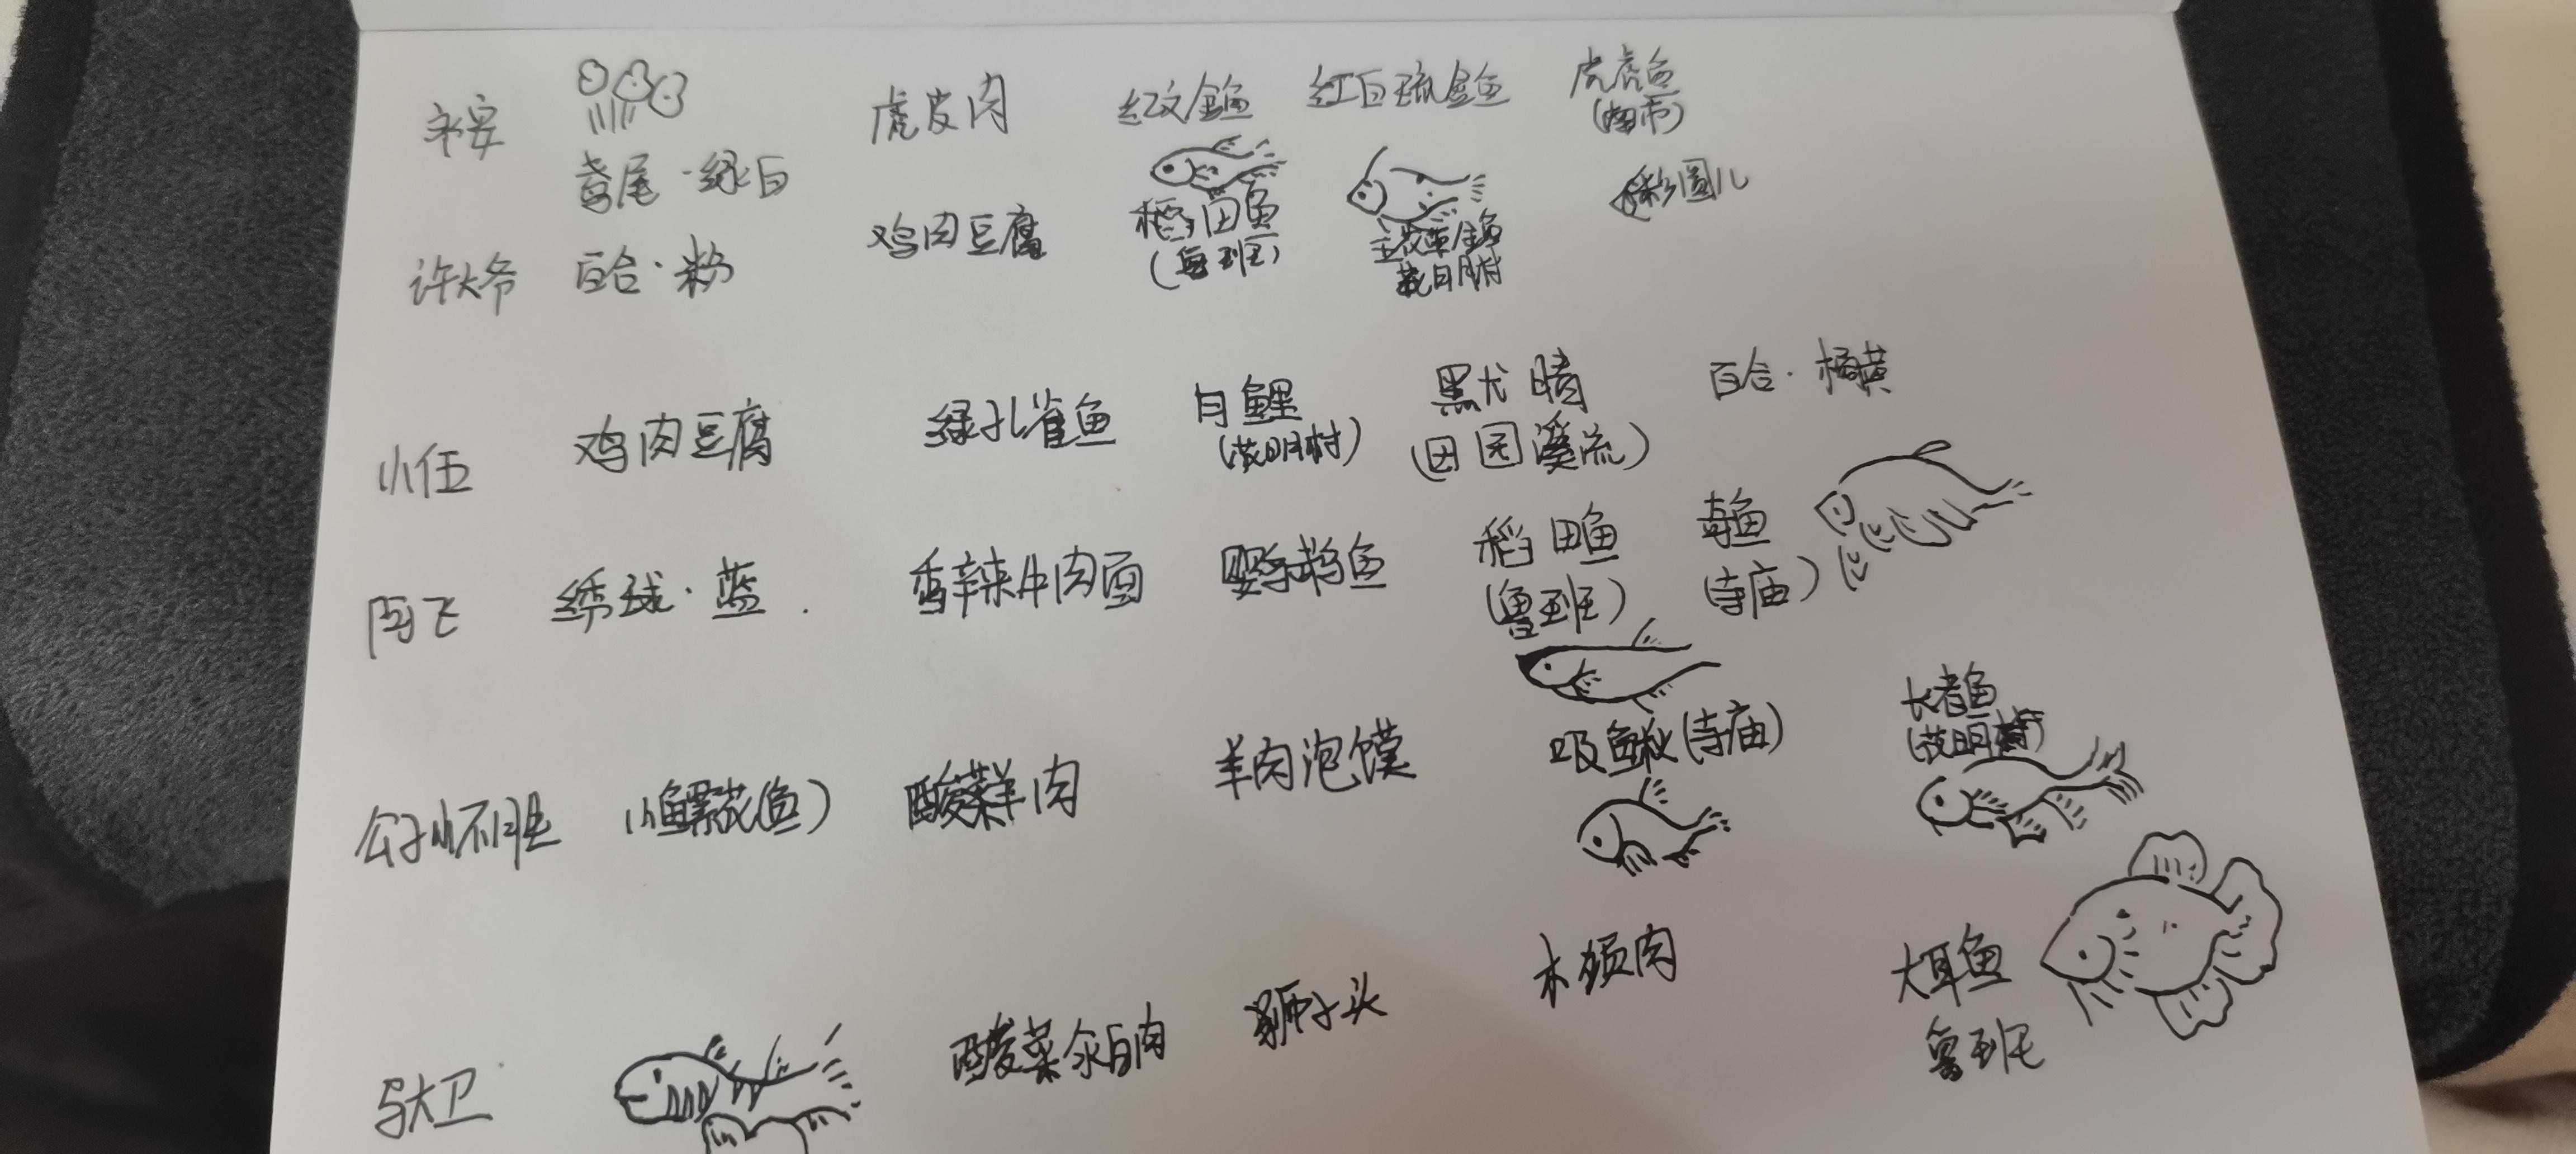 永安 虎皮肉 红文金鱼 红白琉金鱼 虎虎鱼
(南市)
鸢尾·绿白
许大爷 百合·粉 鸡肉豆腐 稻田鱼 彩圆儿
(鲁班) 花明村
小伍 鸡肉豆腐 绿孔雀鱼 白鲤 黑尤晴 百合·橘黄
(花明村) (田园溪流)
阿飞 绣球·蓝 香辣牛肉面 鹦鹉鱼 稻田鱼 寿鱼
(鲁班) (寺庙)
公子小不 小鳏花(鱼) 酸菜羊肉 羊肉泡馍 吸鳅(寺庙) 长者鱼
(花明村)
马大卫 酸菜汆白肉 狮子头 木须肉 大耳鱼
鲁班